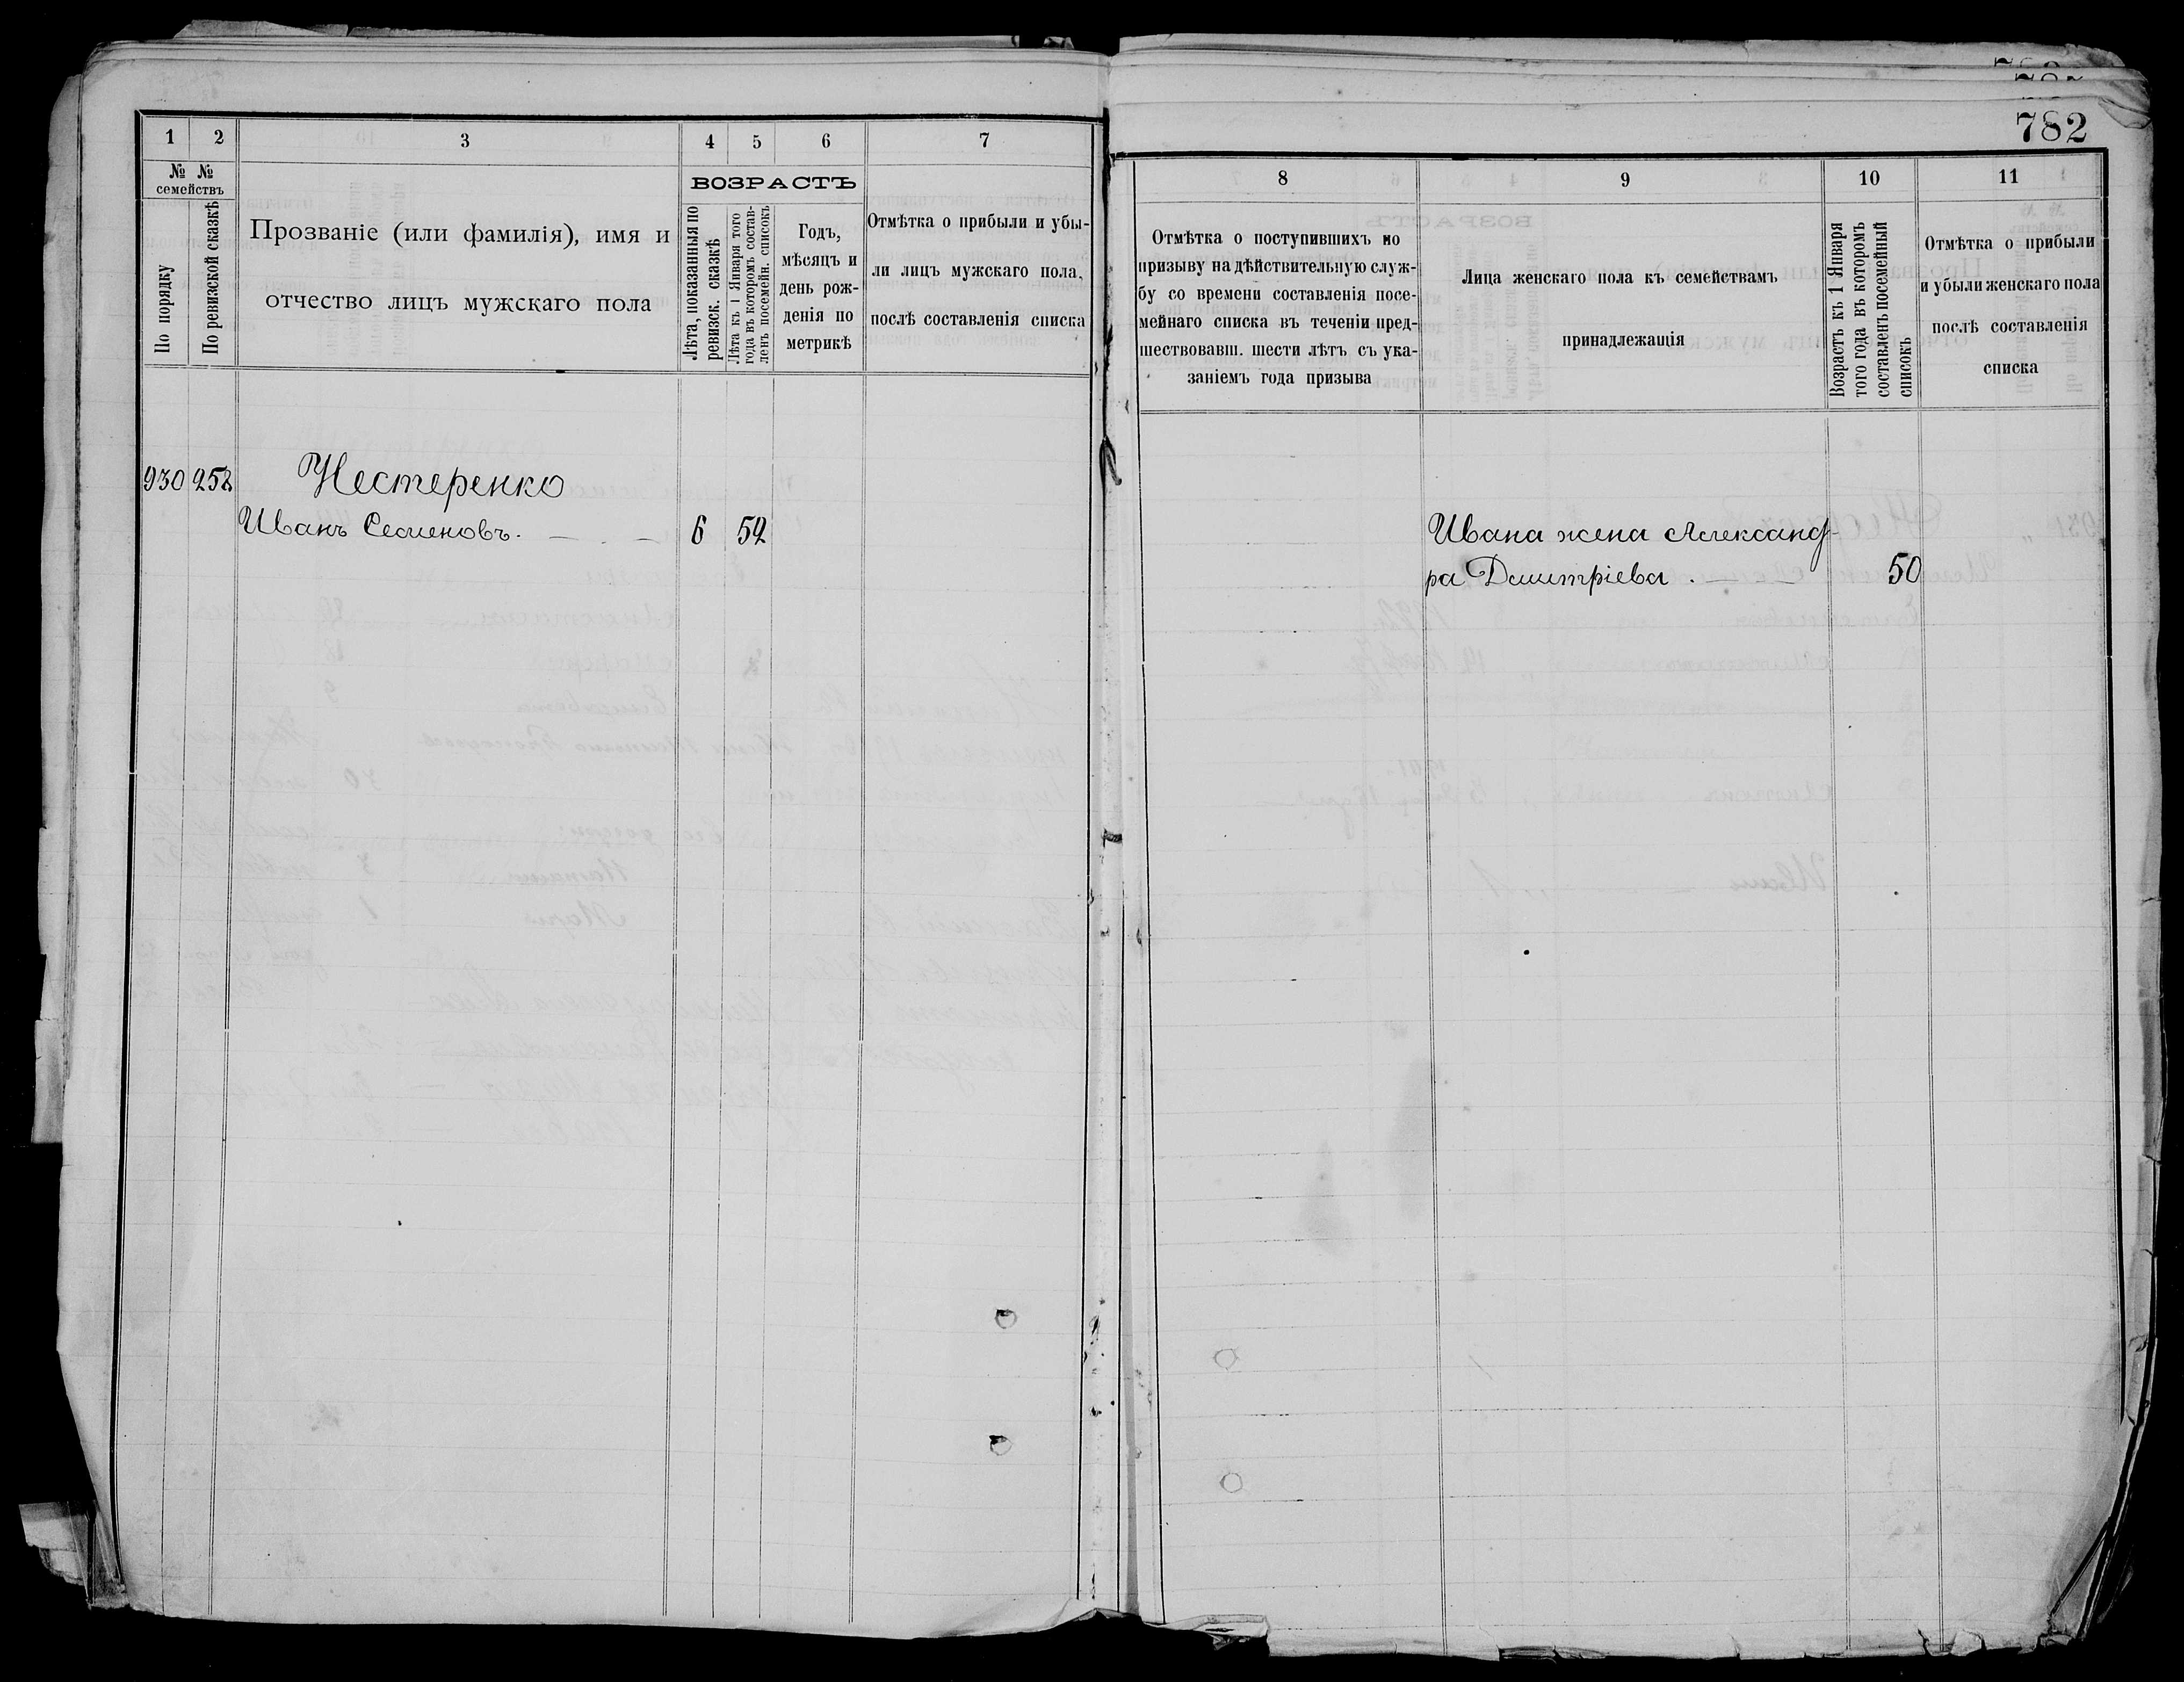 782
1 2 3 4 5 6 7
№ № семействъ
По порядку
По ревизской сказкѣ
Прозваніе (или фамилія), имя и
отчество лицъ мужскаго пола
ВОЗРАСТЪ
Лѣта, показанныя по
ревизск. сказкѣ
Лѣта къ 1 Января того
года въ которомъ состав-
ленъ посемейн. списокъ
Годъ,
мѣсяцъ и
день рож-
денія по
метрикѣ
Отмѣтка о прибыли и убы-
ли лицъ мужскаго пола,
послѣ составленія списка
930 258 Нестеренко
Иванъ Семеновъ. 6 52
8 9 10 11
Отмѣтка о поступившихъ по
призыву на дѣйствительную служ-
бу со времени составленія посе-
мейнаго списка въ теченіи пред-
шествовавш. шести лѣтъ съ ука-
заніемъ года призыва
Лица женскаго пола къ семействамъ
принадлежащія
Возрастъ къ 1 Января
того года въ которомъ
составленъ посемейный
списокъ
Отмѣтка о прибыли
и убыли женскаго пола
послѣ составленія
списка
Ивана жена Александ-
ра Дмитріева. 50